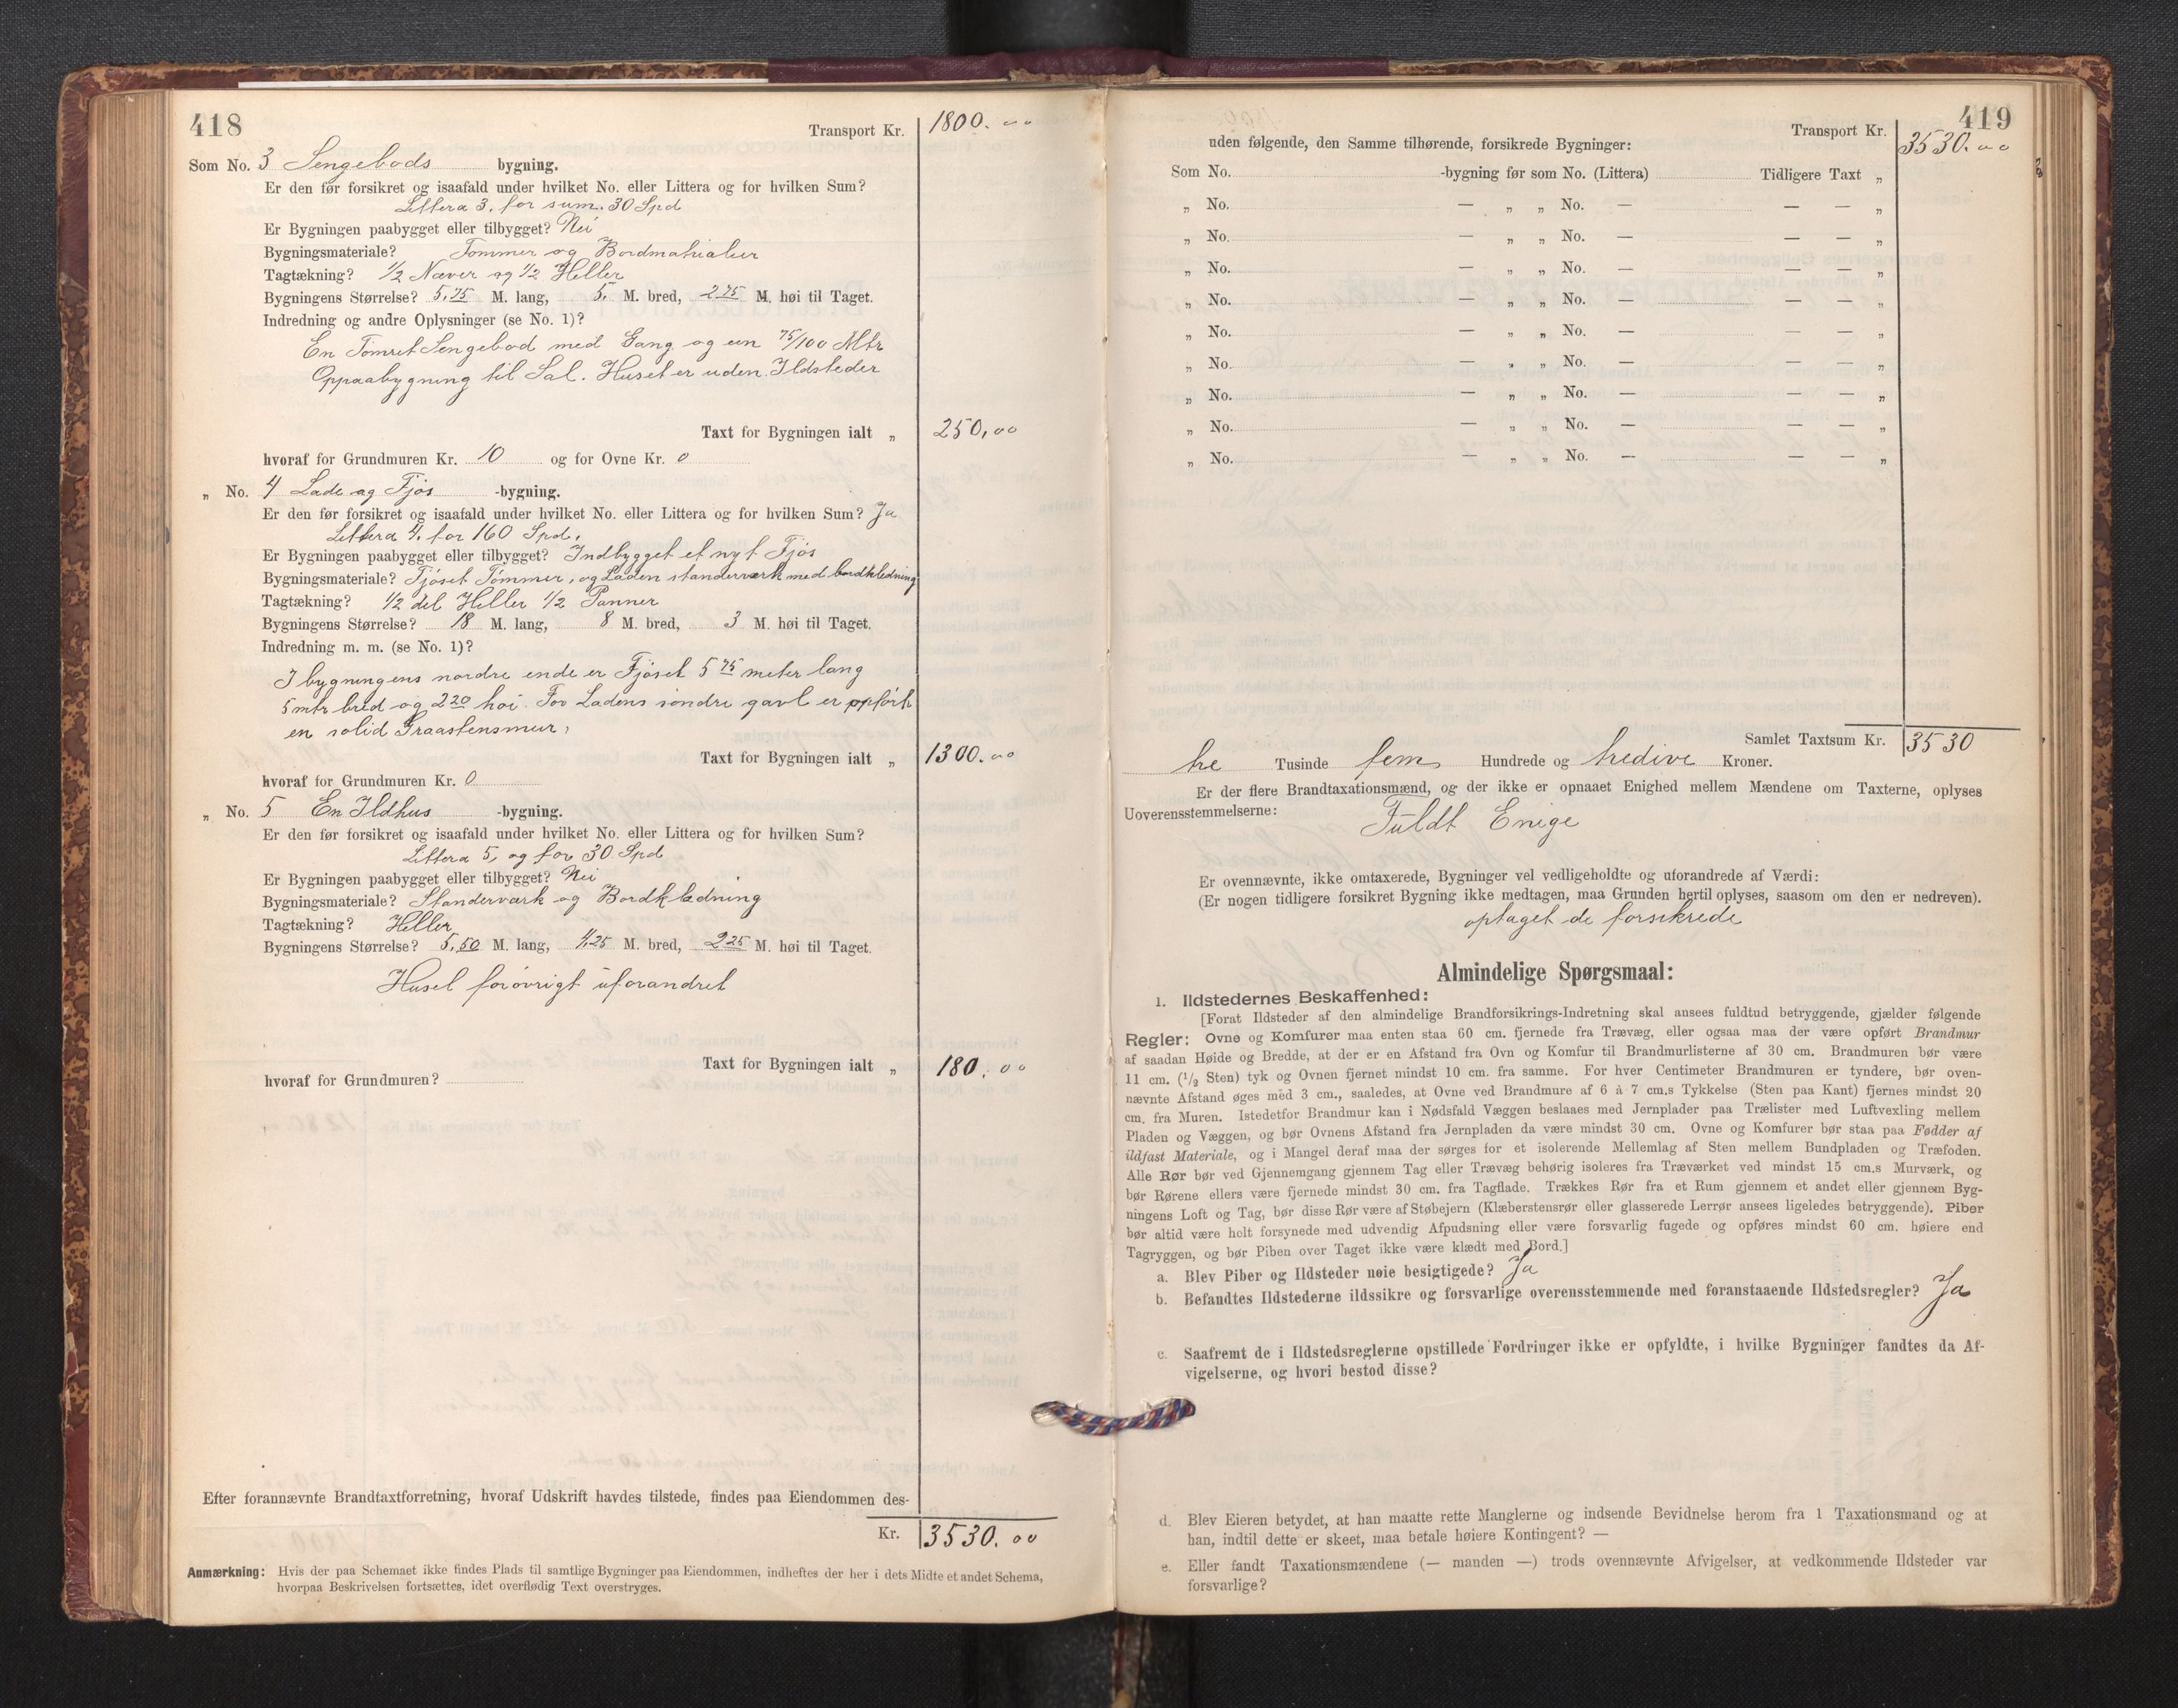 418
Transport Kr. 1800.00
Som No. 3 Sengebods bygning.
Er den før forsikret og isaafald under hvilket No. eller Littera og for hvilken Sum?
Littera 3. for sum. 30 Spd
Er Bygningen paabygget eller tilbygget? Nei
Bygningsmateriale? Tømmer og Bordmatrialier
Tagtækning? 1/2 Næver og 1/2 Heller
Bygningens Størrelse? 5,75 M. lang, 5, M. bred, 2 75 M. høi til Taget.
Indredning og andre Oplysninger (se No. 1)?
En Tømret Sengebod med Gang og een 75/100 Mtr
Oppaabygning til Sal. Huset er uden Ildsteder
Taxt for Bygningen ialt „ 250,00
hvoraf for Grundmuren Kr. 10 og for Ovne Kr. 0
„ No. 4 Lade og Fjøs -bygning.
Er den før forsikret og isaafald under hvilket No. eller Littera og for hvilken Sum? Ja
Littera 4. for 160 Spd.
Er Bygningen paabygget eller tilbygget? Indbygget et nyt Fjøs
Bygningsmateriale? Fjøset Tømmer, og Laden standerværk med bordkledning
Tagtækning? 1/2 del Heller 1/2 Panner
Bygningens Størrelse? 18 M. lang, 8 M. bred, 3 M. høi til Taget.
Indredning m. m. (se No. 1)?
I bygningens nordre ende er Fjøset 5 75 meter lang
5 mtr bred og 2 20 høi. For Ladens søndre gavl er opført
en solid Graastensmur,
Taxt for Bygningen ialt „ 1300.00
hvoraf for Grundmuren Kr. 0
„ No. 5 En Ildhus -bygning.
Er den før forsikret og isaafald under hvilket No. eller Littera og for hvilken Sum?
Littera 5, og for 30 Spd
Er Bygningen paabygget eller tilbygget? Nei
Bygningsmateriale? Standerværk og Bordklædning
Tagtækning? Heller
Bygningens Størrelse? 5,50 M. lang, 4,25 M. bred, 2 25 M. høi til Taget.
Huset forøvrigt uforandret
Taxt for Bygningen ialt „ 180.00
hvoraf for Grundmuren?
Efter forannævnte Brandtaxtforretning, hvoraf Udskrift havdes tilstede, findes paa Eiendommen des-
Kr. 3530.00
Anmærkning: Hvis der paa Schemaet ikke findes Plads til samtlige Bygninger paa Eiendommen, indheftes der her i dets Midte et andet Schema,
hvorpaa Beskrivelsen fortsættes, idet overflødig Text overstryges.
419
Transport Kr. 3530.00
uden følgende, den Samme tilhørende, forsikrede Bygninger:
Som No. -bygning før som No. (Littera) Tidligere Taxt „
„ No. — „ „ No. — — — „
„ No. — „ „ No. — — — „
„ No. — „ „ No. — — — „
„ No. — „ „ No. — — — „
„ No. — „ „ No. — — — „
„ No. — „ „ No. — — — „
„ No. — „ „ No. — — — „
„ No. — „ „ No. — — — „
„ No. — „ „ No. — — — „
Samlet Taxtsum Kr. 3530
tre Tusinde fem Hundrede og tredive Kroner.
Er der flere Brandtaxationsmænd, og der ikke er opnaaet Enighed mellem Mændene om Taxterne, oplyses
Uoverensstemmelserne:
Fuldt Enige
Er ovennævnte, ikke omtaxerede, Bygninger vel vedligeholdte og uforandrede af Værdi:
(Er nogen tidligere forsikret Bygning ikke medtagen, maa Grunden hertil oplyses, saasom om den er nedreven).
optaget de forsikrede
Almindelige Spørgsmaal:
1. Ildstedernes Beskaffenhed:
[Forat Ildsteder af den almindelige Brandforsikrings-Indretning skal ansees fuldtud betryggende, gjælder følgende
Regler: Ovne og Komfurer maa enten staa 60 cm. fjernede fra Trævæg, eller ogsaa maa der være opført Brandmur
af saadan Høide og Bredde, at der er en Afstand fra Ovn og Komfur til Brandmurlisterne af 30 cm. Brandmuren bør være
11 cm. (1/2 Sten) tyk og Ovnen fjernet mindst 10 cm. fra samme. For hver Centimeter Brandmuren er tyndere, bør oven-
nævnte Afstand øges med 3 cm., saaledes, at Ovne ved Brandmure af 6 à 7 cm.s Tykkelse (Sten paa Kant) fjernes mindst 20
cm. fra Muren. Istedetfor Brandmur kan i Nødsfald Væggen beslaaes med Jernplader paa Trælister med Luftvexling mellem
Pladen og Væggen, og bør Ovnens Afstand fra Jernpladen da være mindst 30 cm. Ovne og Komfurer bør staa paa Fødder af
ildfast Materiale, og i Mangel deraf maa der sørges for et isolerende Mellemlag af Sten mellem Bundpladen og Træfoden.
Alle Rør bør ved Gjennemgang gjennem Tag eller Trævæg behørig isoleres fra Træværket ved mindst 15 cm.s Murværk, og
bør Rørene ellers være fjernede mindst 30 cm. fra Tagflade. Trækkes Rør fra et Rum gjennem et andet eller gjennem Byg-
ningens Loft og Tag, bør disse Rør være af Støbejern (Klæberstensrør eller glasserede Lerrør ansees ligeledes betryggende). Piber
bør altid være helt forsynede med udvendig Afpudsning eller være forsvarlig fugede og opføres mindst 60 cm. høiere end
Tagryggen, og bør Piben over Taget ikke være klædt med Bord.]
a. Blev Piber og Ildsteder nøie besigtigede? Ja
b. Befandtes Ildstederne ildssikre og forsvarlige overensstemmende med foranstaaende Ildstedsregler? Ja
c. Saafremt de i Ildstedsreglerne opstillede Fordringer ikke er opfyldte, i hvilke Bygninger fandtes da Af-
vigelserne, og hvori bestod disse?
d. Blev Eieren betydet, at han maatte rette Manglerne og indsende Bevidnelse herom fra 1 Taxationsmand og at
han, indtil dette er skeet, maa betale høiere Kontingent? —
e. Eller fandt Taxationsmændene (— manden —) trods ovennævnte Afvigelser, at vedkommende Ildsteder var
forsvarlige?